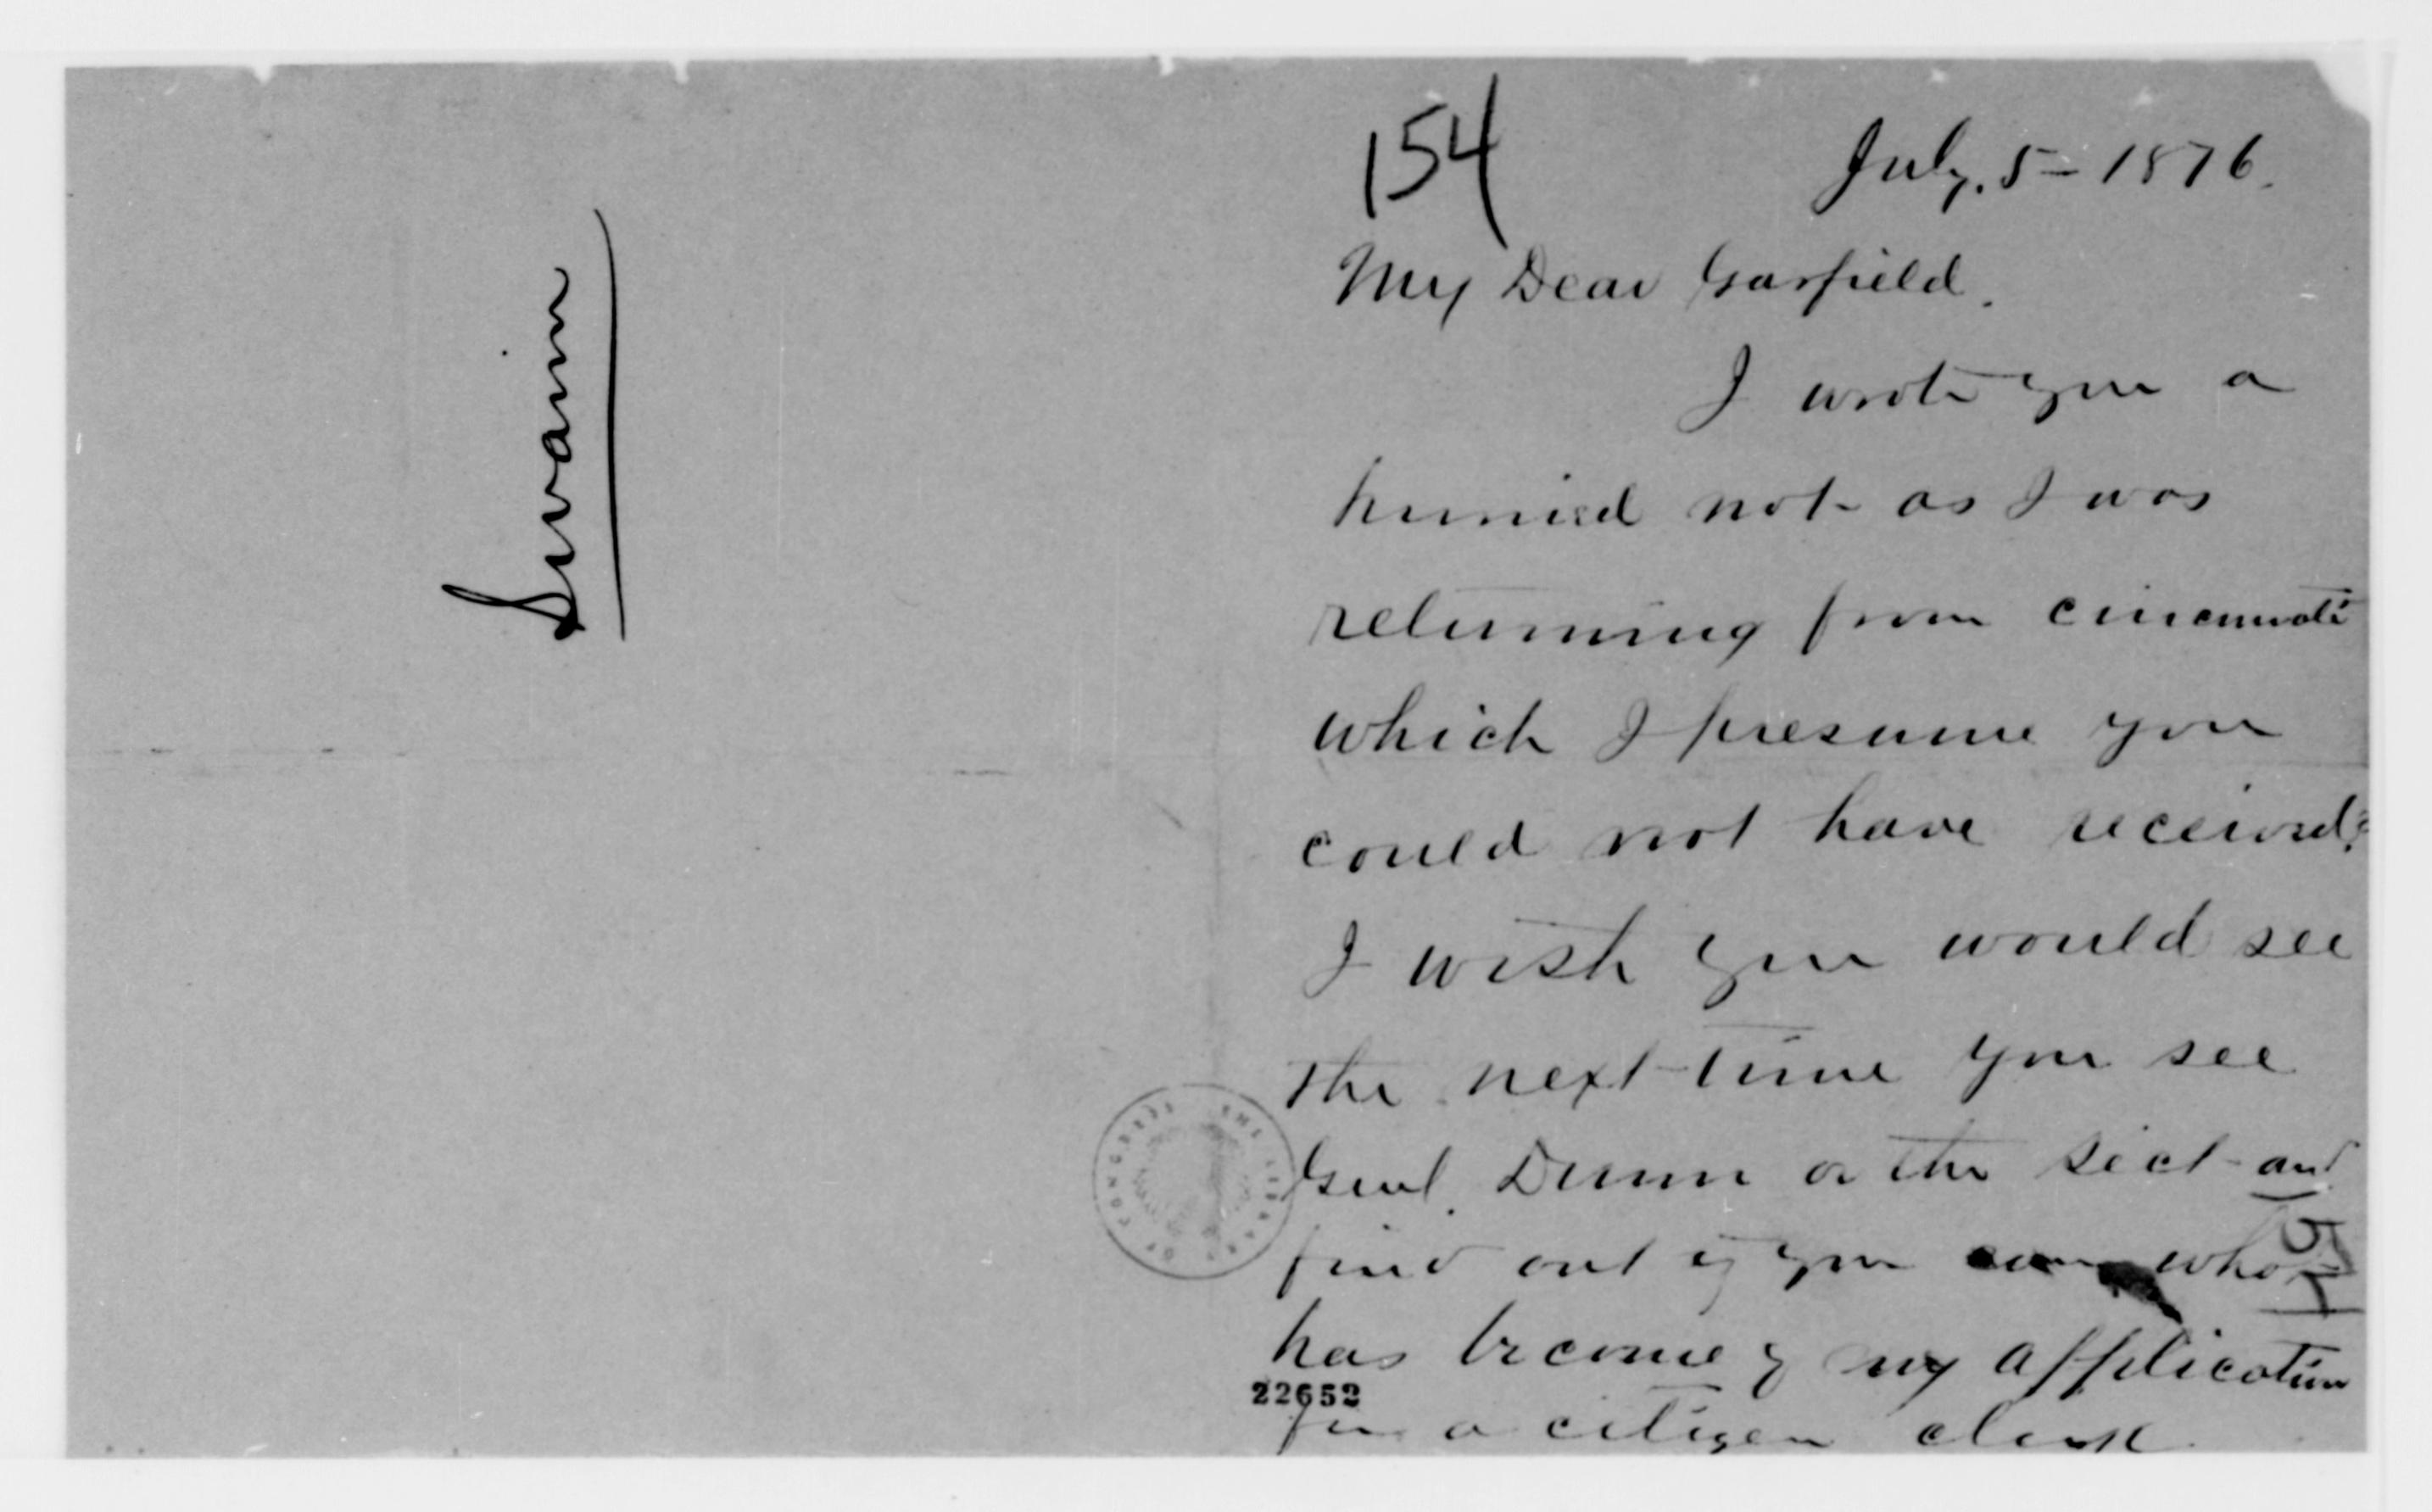 Swaim
154
July. 5 - 1876.
My Dear Garfield.
I wrote you a
hurried note as I was
returning from cincinnati
which I presume you
could not have received.
I wish you would see
the next time you see
Genl. Dunn or the Sect and
find out if you can what
has become of my application
for a citizen clerk
154
22652
THE LIBRARY OF CONGRESS